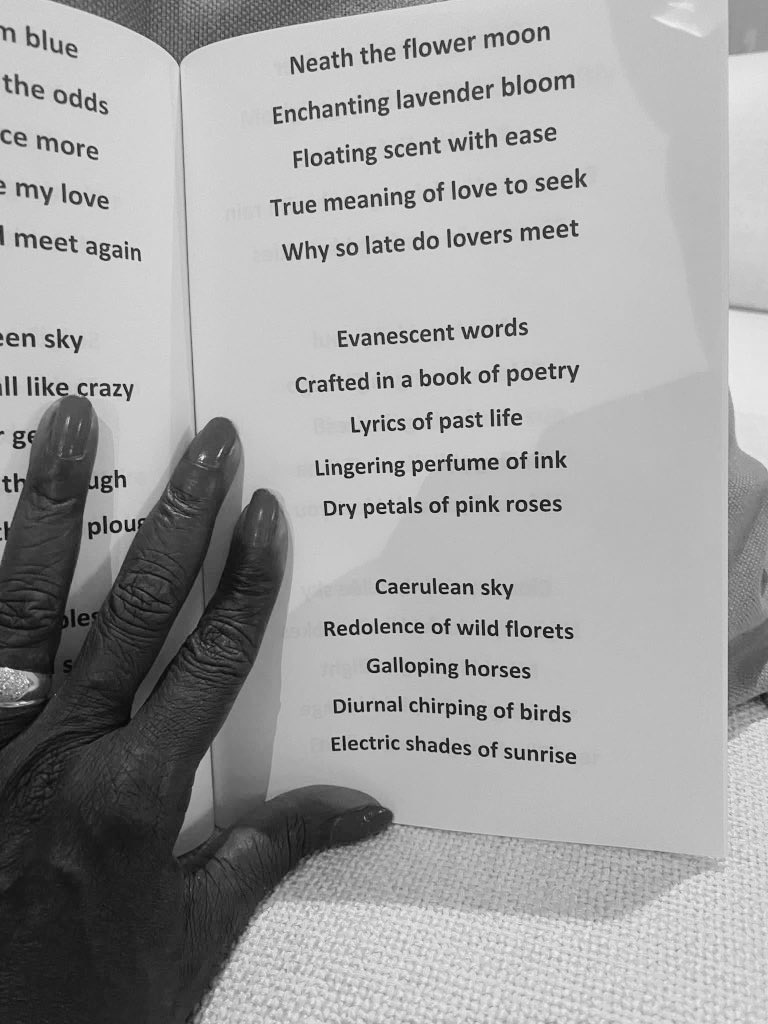 blue
the odds
more
my love
meet again
sky
like crazy
Neath the flower moon
Enchanting lavender bloom
Floating scent with ease
True meaning of love to seek
Why so late do lovers meet
Evanescent words
Crafted in a book of poetry
Lyrics of past life
Lingering perfume of ink
Dry petals of pink roses
Caerulean sky
Redolence of wild florets
Galloping horses
Diurnal chirping of birds
Electric shades of sunrise